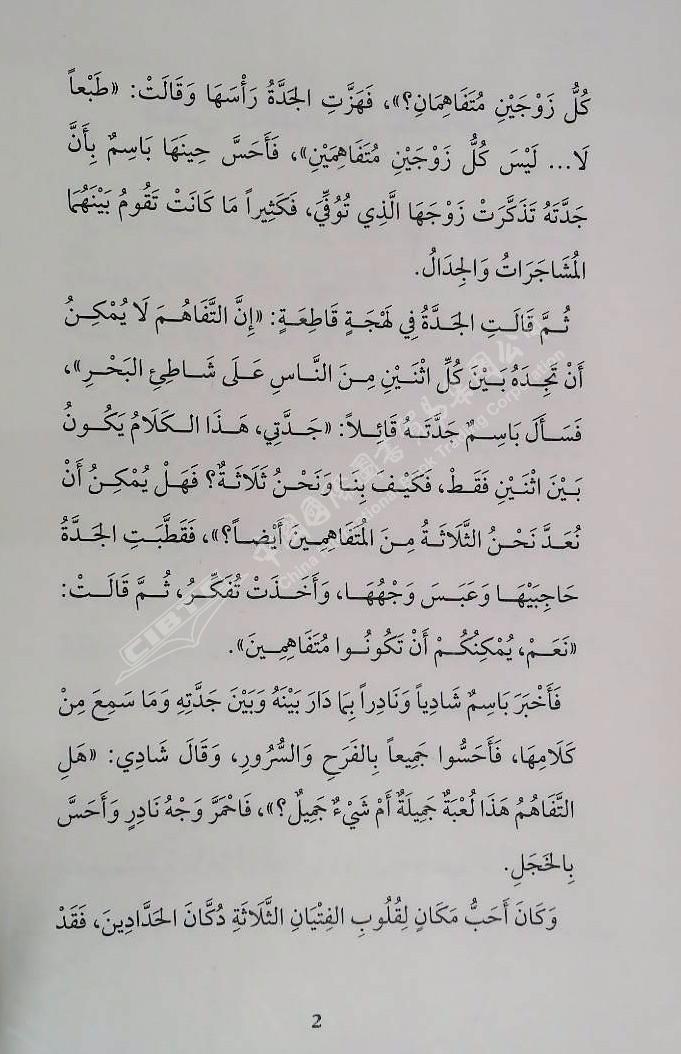 كُلُّ زَوْجَيْنِ مُتَفَاهِمَانِ؟»، فَهَزَّتِ الجَدَّةُ رَأْسَهَا وَقَالَتْ: «طَبْعاً
لَا... لَيْسَ كُلُّ زَوْجَيْنِ مُتَفَاهِمَيْنِ»، فَأَحَسَّ حِينَهَا بَاسِمٌ بِأَنَّ
جَدَّتَهُ تَذَكَّرَتْ زَوْجَهَا الَّذِي تُوُفِّيَ، فَكَثِيراً مَا كَانَتْ تَقُومُ بَيْنَهُمَا
المُشَاجَرَاتُ وَالجِدَالُ.
ثُمَّ قَالَتِ الجَدَّةُ فِي لَهْجَةٍ قَاطِعَةٍ: «إِنَّ التَّفَاهُمَ لَا يُمْكِنُ
أَنْ تَجِدَهُ بَيْنَ كُلِّ اثْنَيْنِ مِنَ النَّاسِ عَلَى شَاطِئِ البَحْرِ»،
فَسَأَلَ بَاسِمٌ جَدَّتَهُ قَائِلاً: «جَدَّتِي، هَذَا الكَلَامُ يَكُونُ
بَيْنَ اثْنَيْنِ فَقَطْ، فَكَيْفَ بِنَا وَنَحْنُ ثَلَاثَةٌ؟ فَهَلْ يُمْكِنُ أَنْ
نُعَدَّ نَحْنُ الثَّلَاثَةُ مِنَ المُتَفَاهِمِينَ أَيْضاً؟»، فَقَطَّبَتِ الجَدَّةُ
حَاجِبَيْهَا وَعَبَسَ وَجْهُهَا، وَأَخَذَتْ تُفَكِّرُ، ثُمَّ قَالَتْ:
«نَعَمْ، يُمْكِنُكُمْ أَنْ تَكُونُوا مُتَفَاهِمِينَ».
فَأَخْبَرَ بَاسِمٌ شَادِياً وَنَادِراً بِمَا دَارَ بَيْنَهُ وَبَيْنَ جَدَّتِهِ وَمَا سَمِعَ مِنْ
كَلَامِهَا، فَأَحَسُّوا جَمِيعاً بِالفَرَحِ وَالسُّرُورِ، وَقَالَ شَادِي: «هَلِ
التَّفَاهُمُ هَذَا لُعْبَةٌ جَمِيلَةٌ أَمْ شَيْءٌ جَمِيلٌ؟»، فَاحْمَرَّ وَجْهُ نَادِرٍ وَأَحَسَّ
بِالخَجَلِ.
وَكَانَ أَحَبُّ مَكَانٍ لِقُلُوبِ الفِتْيَانِ الثَّلَاثَةِ دُكَّانَ الحَدَّادِينَ، فَقَدْ
2
CIBTC